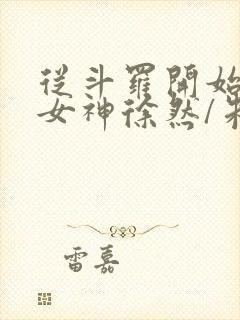 從斗羅開始
女神徐然/
雷嘉